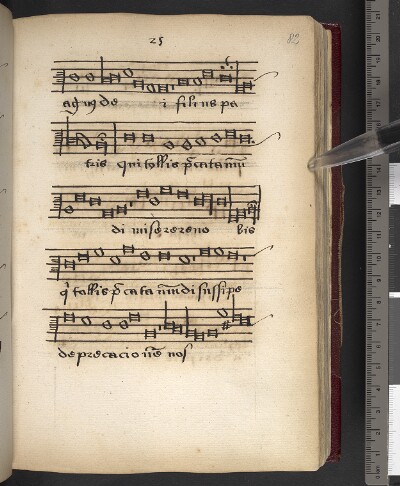 25 82
agnus de i filius pa
tris qui tollis pccata mu
di miserere no bis
q tollis pccata mudi suscipe
deprecacione nos